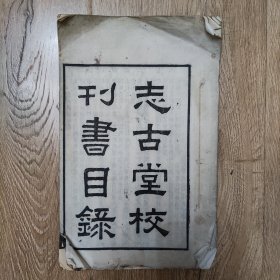 志古堂校
刊書目錄